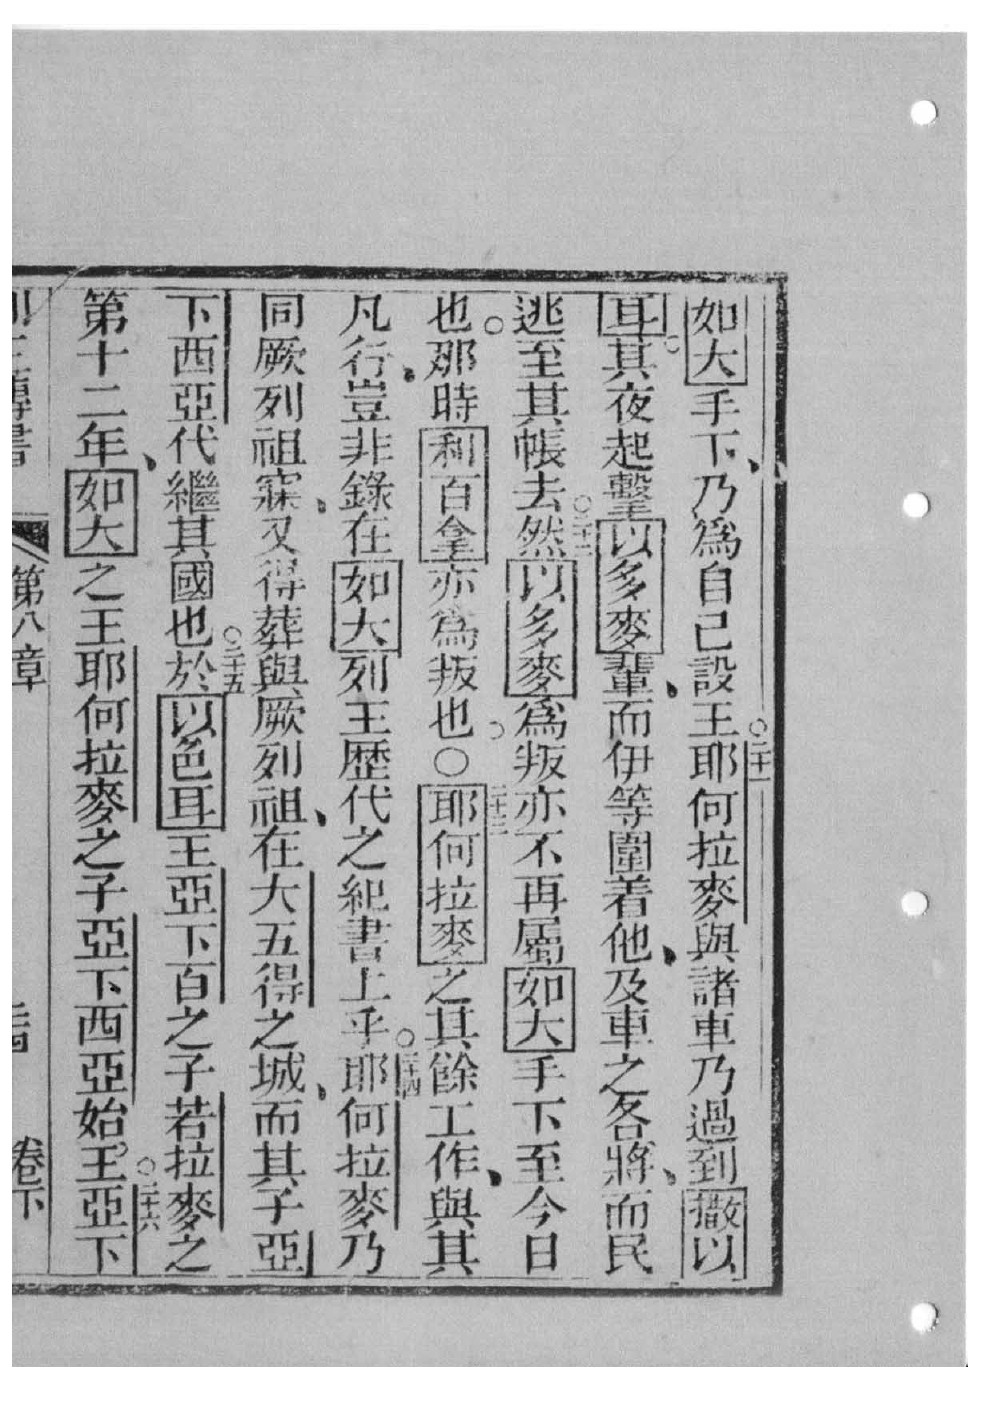 如大手下乃爲自己設王○二十一耶何拉麥與諸車乃過到撒以
耳○其夜起擊以多麥輩而伊等圍着他及車之各將而民
逃至其帳去○二十二然以多麥爲叛亦不再屬如大手下至今日
也○那時利百拿亦爲叛也○○二十三耶何拉麥之其餘工作與其
凡行豈非錄在如大列王歷代之紀書上乎○二十四耶何拉麥乃
同厥列祖寐又得葬與厥列祖在大五得之城而其子亞
下西亞代繼其國也○二十五於以色耳王亞下百之子若拉麥之
第十二年如大之王耶何拉麥之子亞下西亞始王○二十六亞下
第八章
卷下